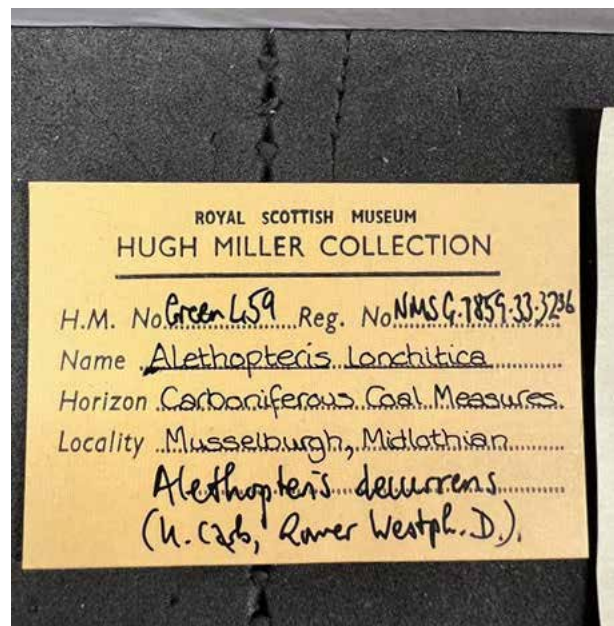 ROYAL SCOTTISH MUSEUM
HUGH MILLER COLLECTION
H.M. No Green 459 Reg. No NMS G.1859.33.3236
Name Alethopteris Lonchitica
Horizon Carboniferous Coal Measures
Locality Musselburgh, Midlothian
Alethopteris decurrens
(U. Carb, Lower Westph. D.).